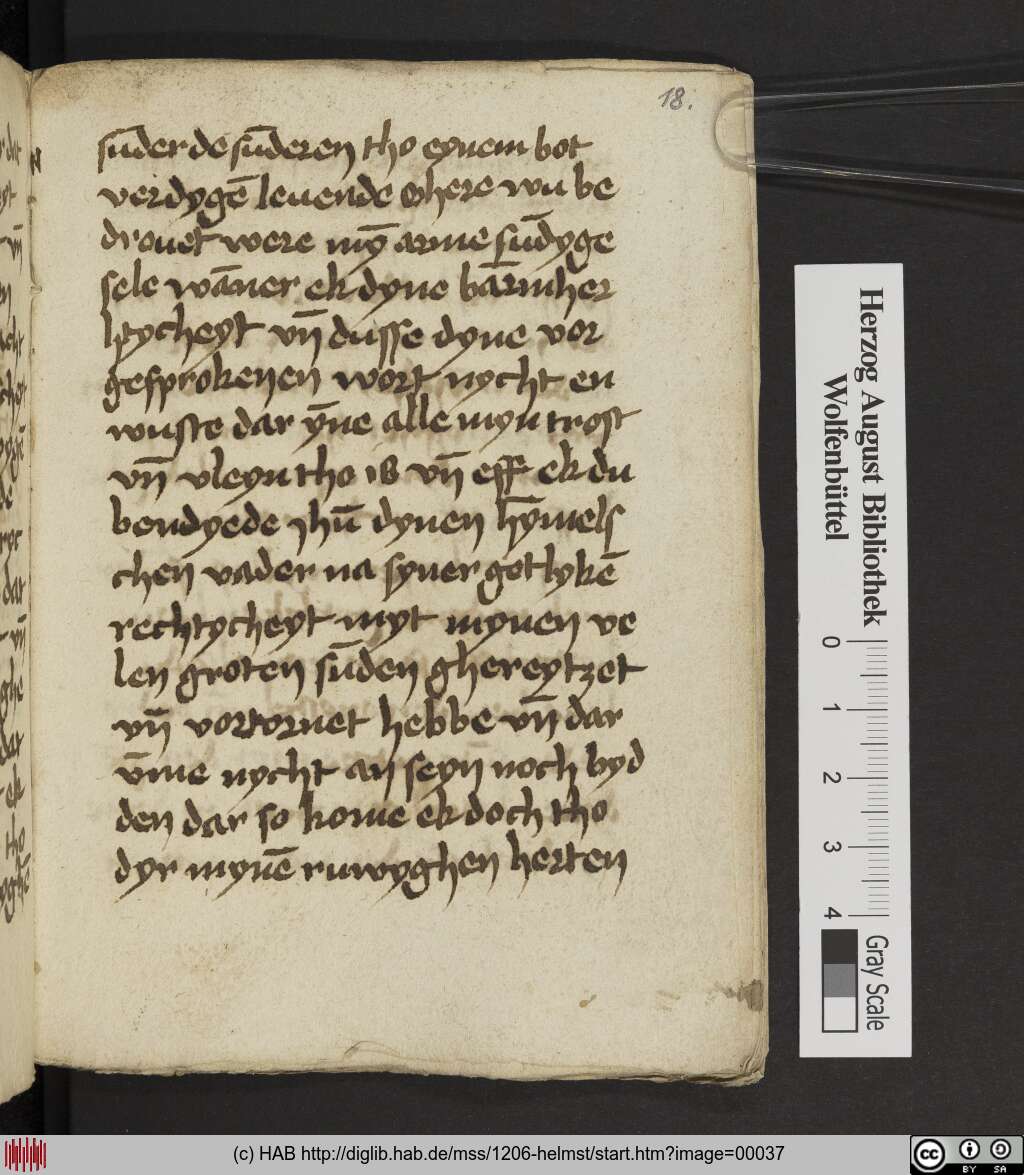 18.
sūder de sūderen tho eynem bot
verdygē leuende O here wu be
drouet were mȳ arme sūdyge
sele wāner ek dyne bārmher
tycheyt vn̄ dusse dyne vor
gesprokenen wort nycht en
wuste dar ȳne alle myn trost
vn̄ vleyn tho is vn̄ eff ek du
bendyede jhū dynen hȳmels
chen vader na syner gotlykē
rechtycheyt myt mynen ve
len groten sūden ghereytzet
vn̄ vortornet hebbe vn̄ dar
v̄me nycht an seyn noch byd
den dar so kome ek doch tho
dyr mynē ruwyghen herten
Herzog August Bibliothek
Wolfenbüttel
0 1 2 3 4
Gray Scale
(c) HAB http://diglib.hab.de/mss/1206-helmst/start.htm?image=00037
cc BY SA